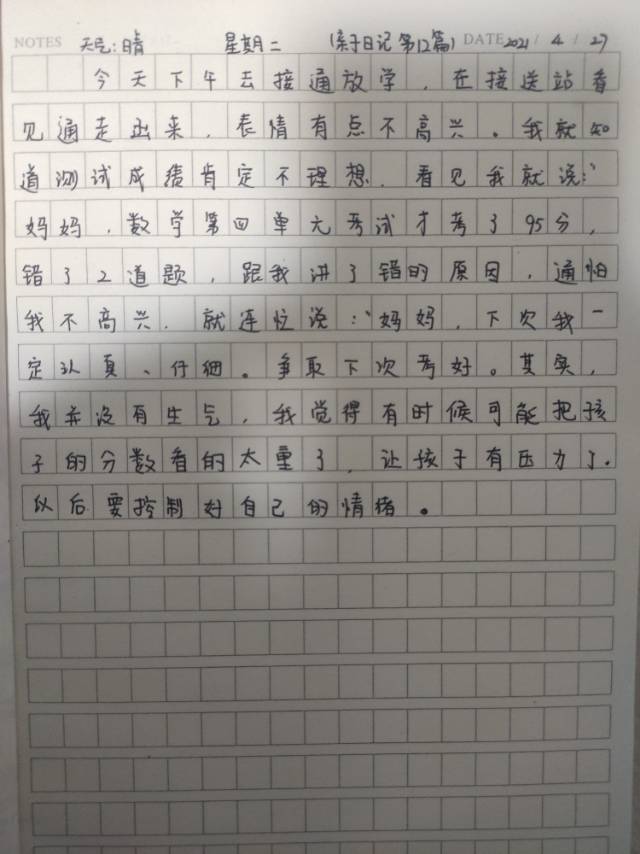 NOTES 天气:晴 星期二 (亲子日记 第12篇) DATE 2021 / 4 / 27
今天下午去接通放学，在接送站看
见通走出来，表情有点不高兴。我就知
道测试成绩肯定不理想，看见我就说:“
妈妈，数学第四单元考试才考了95分，
错了2道题，跟我讲了错的原因，通怕
我不高兴，就连忙说:“妈妈，下次我一
定认真、仔细。争取下次考好。其实，
我并没有生气，我觉得有时候可能把孩
子的分数看的太重了，让孩子有压力了.
以后要控制好自己的情绪。